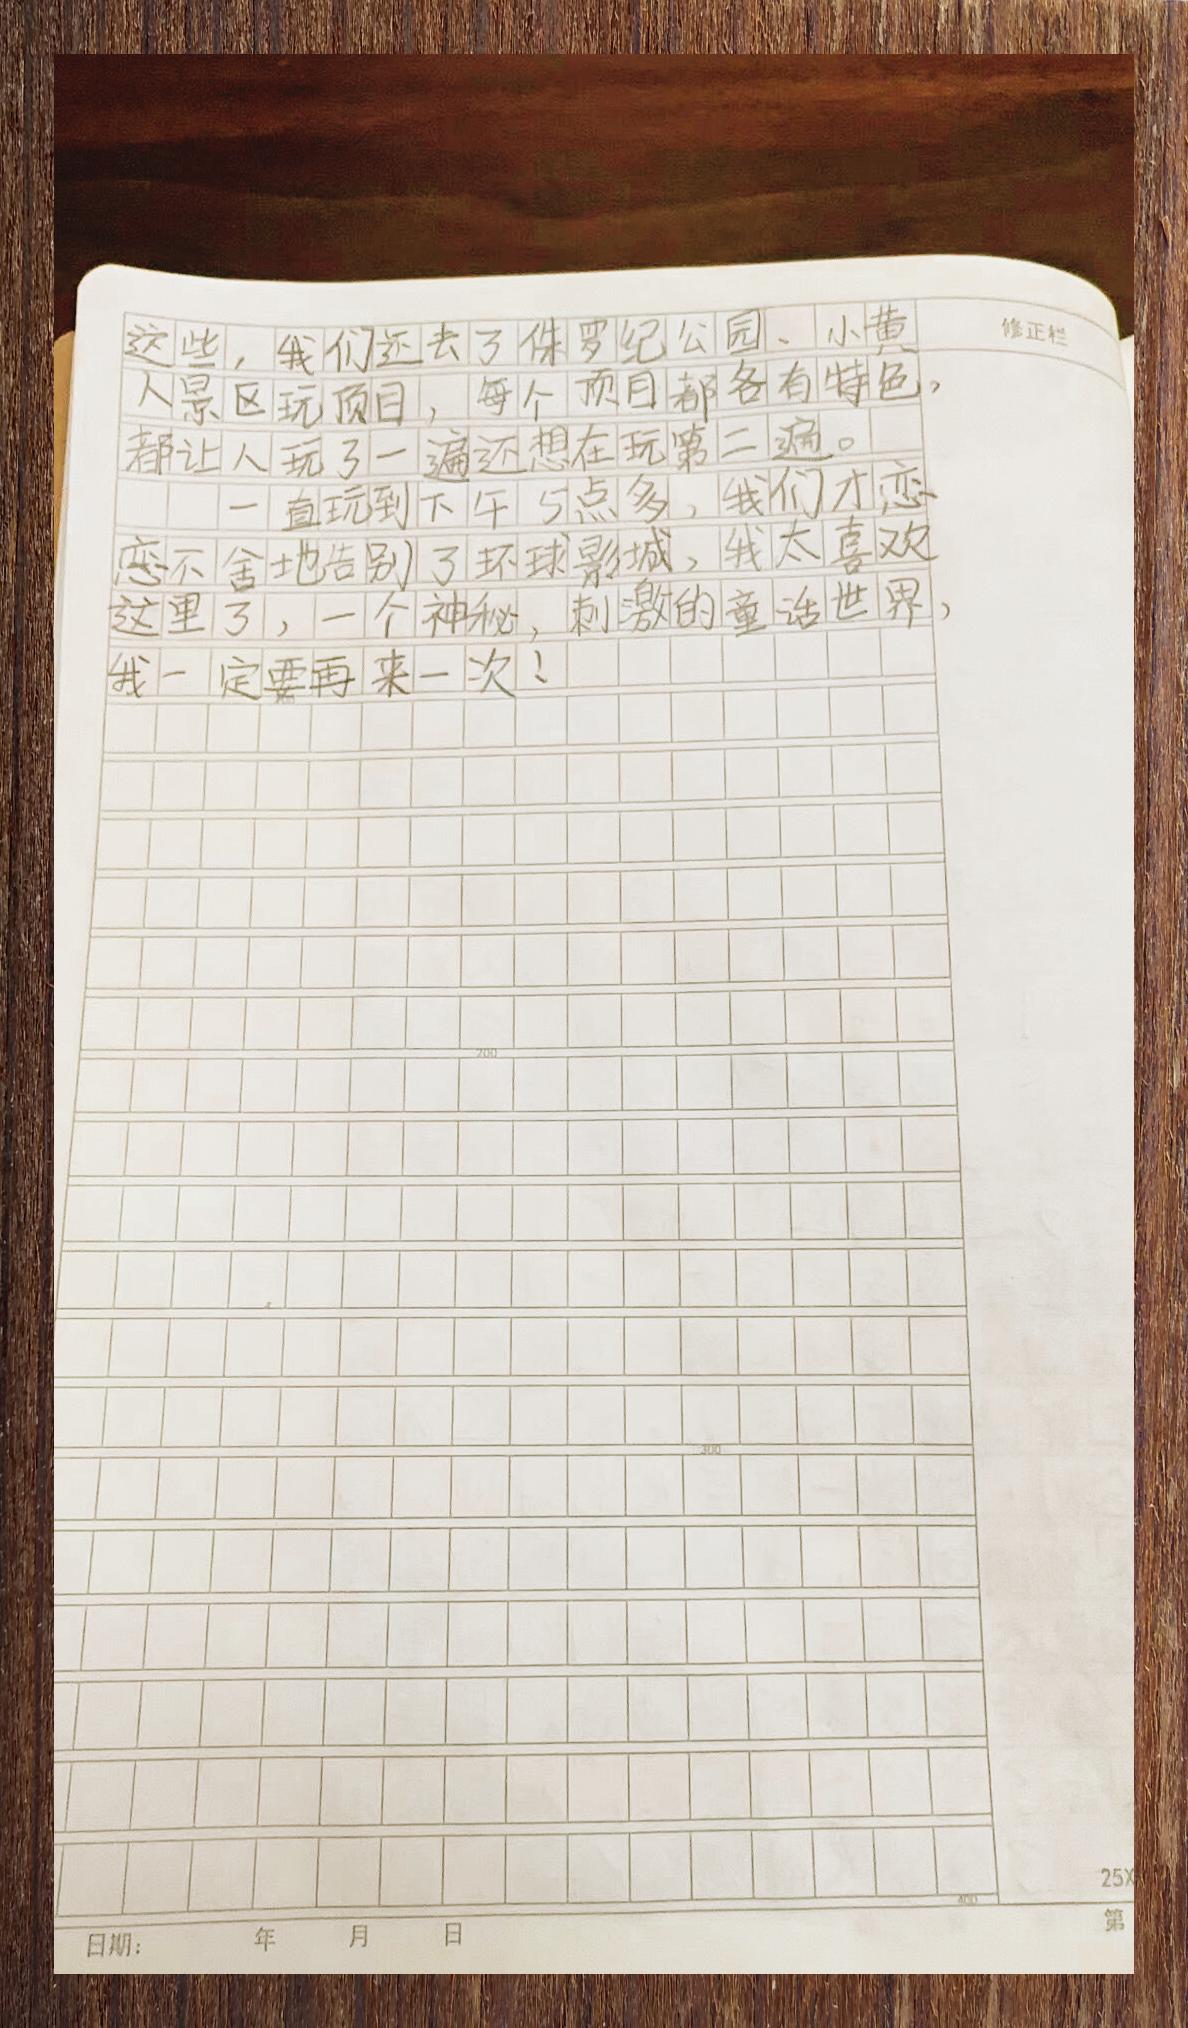 这些，我们还去了侏罗纪公园、小黄
修正栏
人景区玩项目，每个项目都各有特色，
都让人玩了一遍还想在玩第二遍。
一直玩到下午5点多，我们才恋
恋不舍地告别了环球影城，我太喜欢
这里了，一个神秘，刺激的童话世界，
我一定要再来一次！
200
300
400
25X
第
日期： 年 月 日